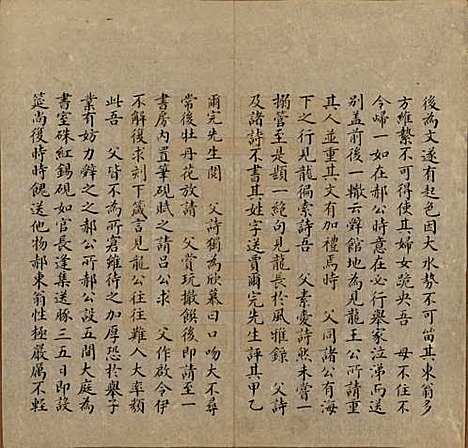 後為文遂有起色因大水勢不可畄其東翁多
方維縶不可得使其婦女跪央吾　母不住不
今㱕一如在郝公時意在必行舉家泣涕而送
別蓋前後一轍云舜館地為見龍王公所請重
其人並重其文有加禮焉時　父同諸公有海
下之行見龍徧索詩吾　父素愛詩然未嘗一
搦管至是顯一絕句見龍長於風雅錄　父詩
及諸詩不書其姓字送賈爾完先生評其甲乙
爾完先生閱　父詩獨為欣蒙曰口吻大不尋
常後牡丹花放請　父賞玩撤饌後即請至一
書房內置筆硯賦之請吕公求　父作啟令伊
不解後求刻下箴言見龍公往往難人大率類
此吾　父㫮不為所窘維待之加厚恐於舉子
業有妨力辤之之郝公所郝公設五間大庭為
書室硃紅錫硯如官長逢集送豚三五日即設
筵尚後時時餽送他物郝東翁性極嚴厲不輕